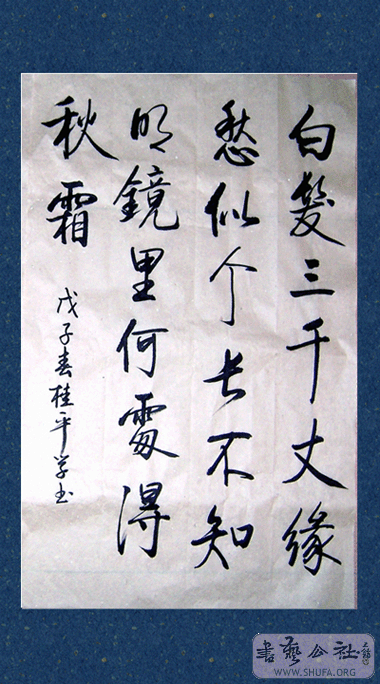 白髮三千丈缘
愁似个长不知
明鏡里何處得
秋霜
戊子春桂平学书
書藝公社
WWW.SHUFA.ORG